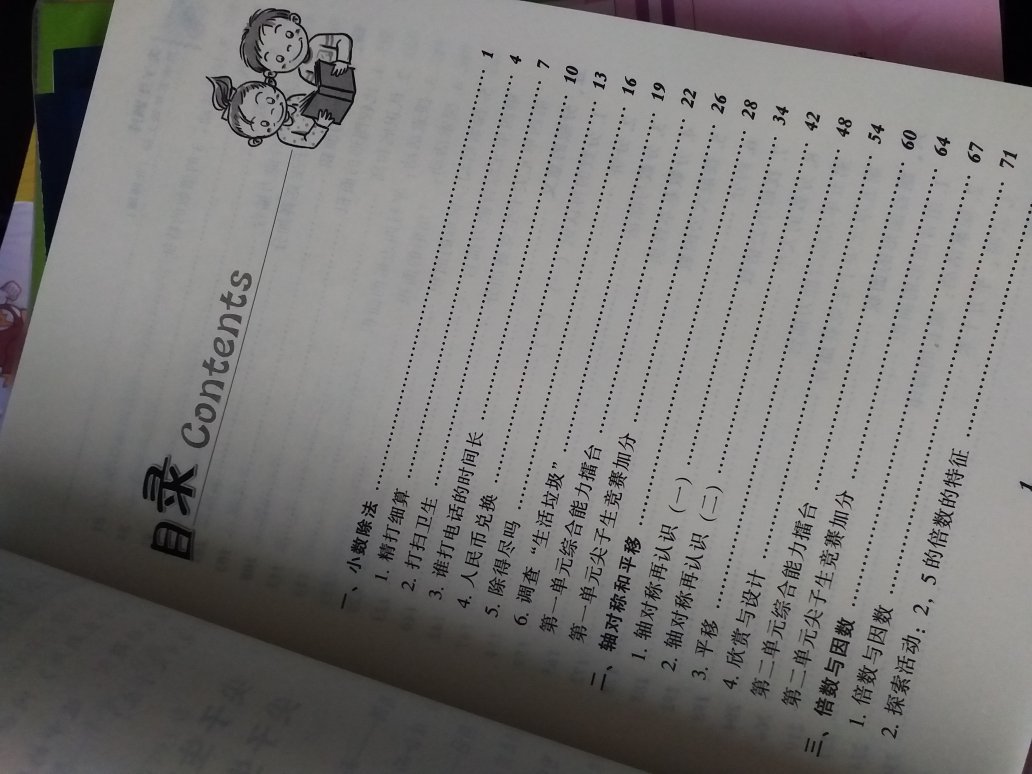 目录 Contents
一、小数除法 …… 1
1. 精打细算 …… 4
2. 打扫卫生 …… 7
3. 谁打电话的时间长 …… 10
4. 人民币兑换 …… 13
5. 除得尽吗 …… 16
6. 调查“生活垃圾” …… 19
第一单元综合能力擂台 …… 22
第一单元尖子生竞赛加分 …… 26
二、轴对称和平移 …… 28
1. 轴对称再认识（一） …… 34
2. 轴对称再认识（二） …… 42
3. 平移 …… 48
4. 欣赏与设计 …… 54
第二单元综合能力擂台 …… 60
第二单元尖子生竞赛加分 …… 64
三、倍数与因数 …… 67
1. 倍数与因数 …… 71
2. 探索活动：2，5的倍数的特征 ……
1